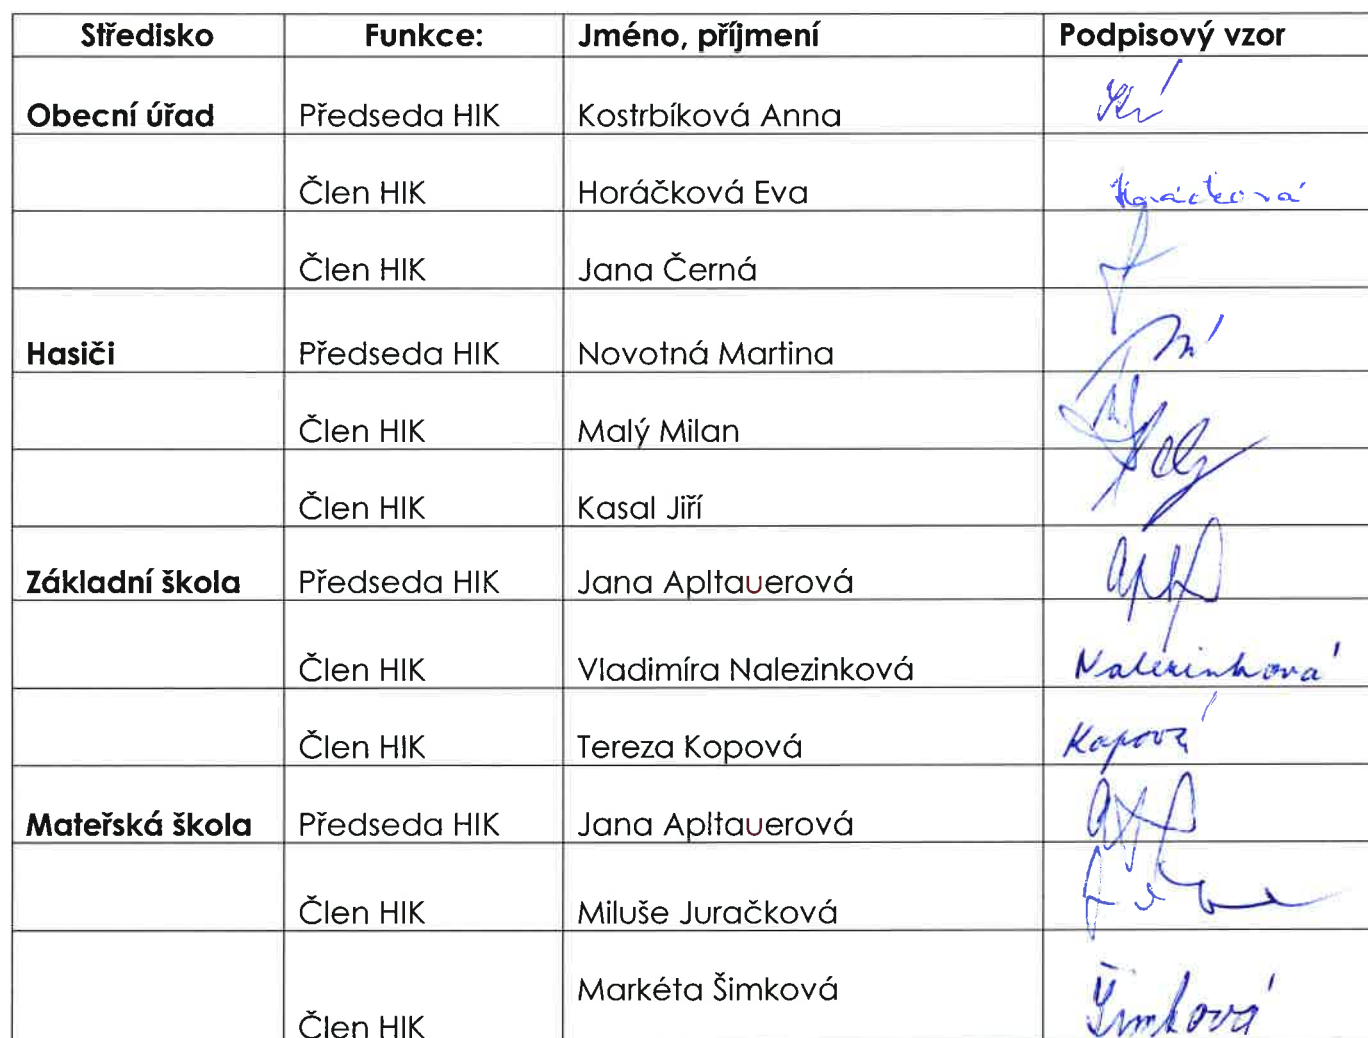 Středisko Funkce: Jméno, příjmení Podpisový vzor
Obecní úřad Předseda HIK Kostrbíková Anna
Člen HIK Horáčková Eva Horáčková
Člen HIK Jana Černá
Hasiči Předseda HIK Novotná Martina
Člen HIK Malý Milan
Člen HIK Kasal Jiří
Základní škola Předseda HIK Jana Apltauerová
Člen HIK Vladimíra Nalezinková Nalezinková
Člen HIK Tereza Kopová Kopová
Mateřská škola Předseda HIK Jana Apltauerová
Člen HIK Miluše Juračková
Markéta Šimková Šimková
Člen HIK